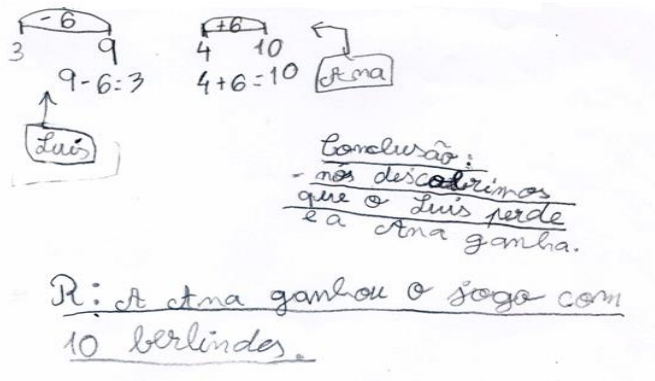 - 6
3 9
9-6=3
Luís
+6
4 10
4+6=10
Ana
Conclusão:
- nós descobrimos
que o Luís perde
e a Ana ganha.
R: A Ana ganhou o jogo com
10 berlindes.